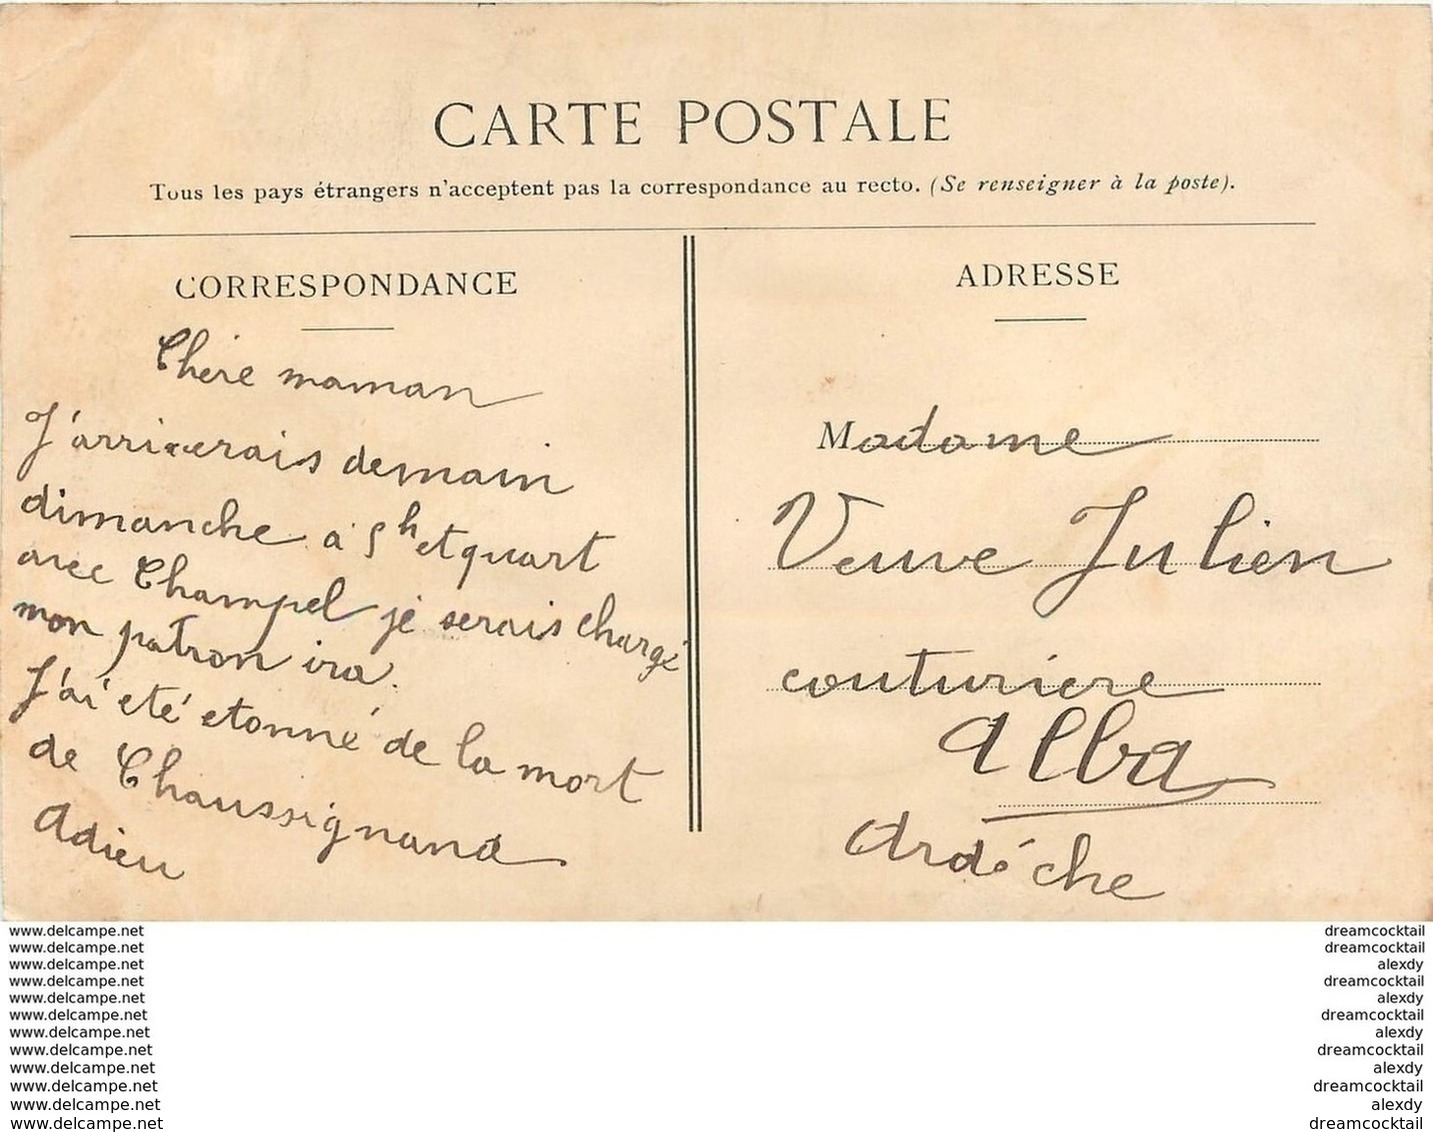 CARTE POSTALE
Tous les pays étrangers n'acceptent pas la correspondance au recto. (Se renseigner à la poste).
CORRESPONDANCE
Chère maman
J'arriverais demain
dimanche à 5h et quart
avec Champel je serais chargé
mon patron ira.
J'ai eté etonné de la mort
de Chaussignand
Adieu
ADRESSE
Madame
Veuve Julien
couturière
Alba
Ardèche
www.delcampe.net
www.delcampe.net
www.delcampe.net
www.delcampe.net
www.delcampe.net
www.delcampe.net
www.delcampe.net
www.delcampe.net
www.delcampe.net
www.delcampe.net
www.delcampe.net
www.delcampe.net
dreamcocktail
dreamcocktail
alexdy
dreamcocktail
alexdy
dreamcocktail
alexdy
dreamcocktail
alexdy
dreamcocktail
alexdy
dreamcocktail